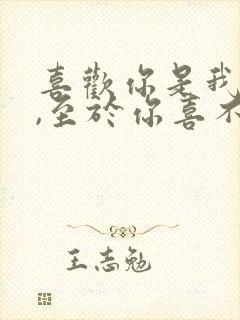 喜歡你是我
,至於你喜不
王志勉